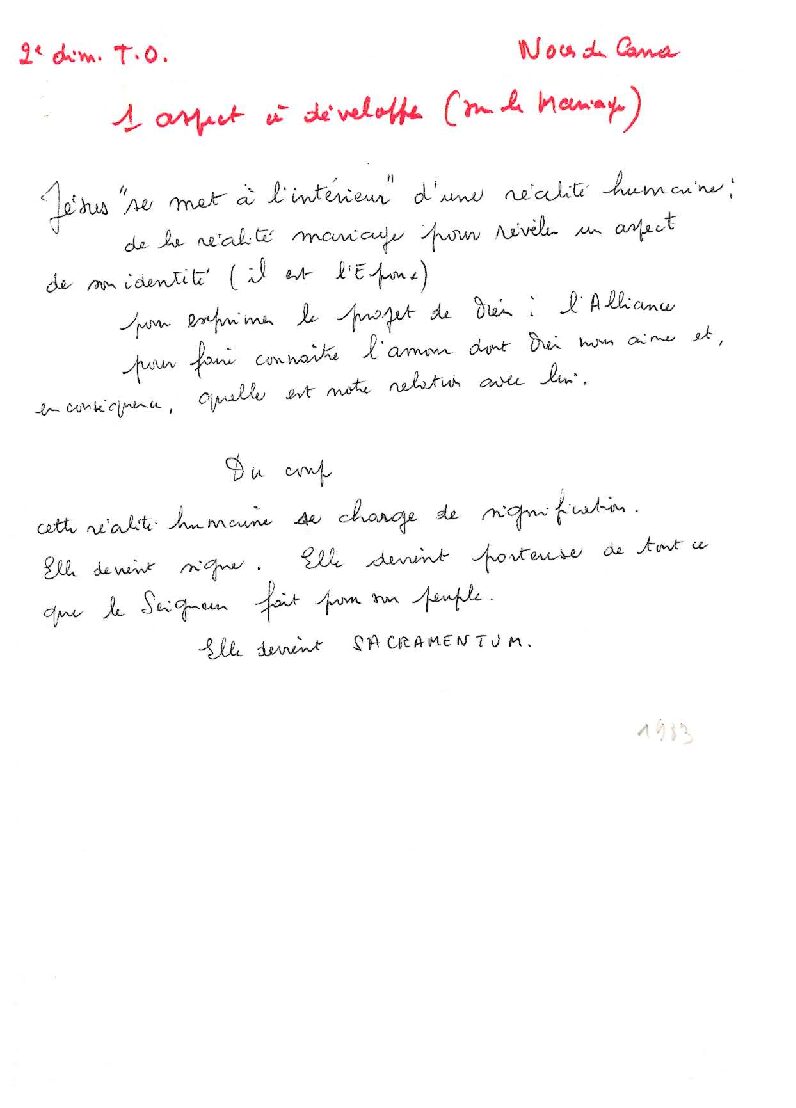 2e dim. T.O. Noces de Cana
1 aspect à développer (sur le Mariage)
Jésus "se met à l'intérieur" d'une réalité humaine;
de la réalité mariage pour révéler un aspect
de son identité (il est l'Epoux)
pour exprimer le projet de Dieu : l'Alliance
pour faire connaître l'amour dont Dieu nous aime et,
en conséquence, quelle est notre relation avec lui.
Du coup
cette réalité humaine se charge de signification.
Elle devient signe. Elle devient porteuse de tout ce
que le Seigneur fait pour son peuple.
Elle devient SACRAMENTUM.
1983